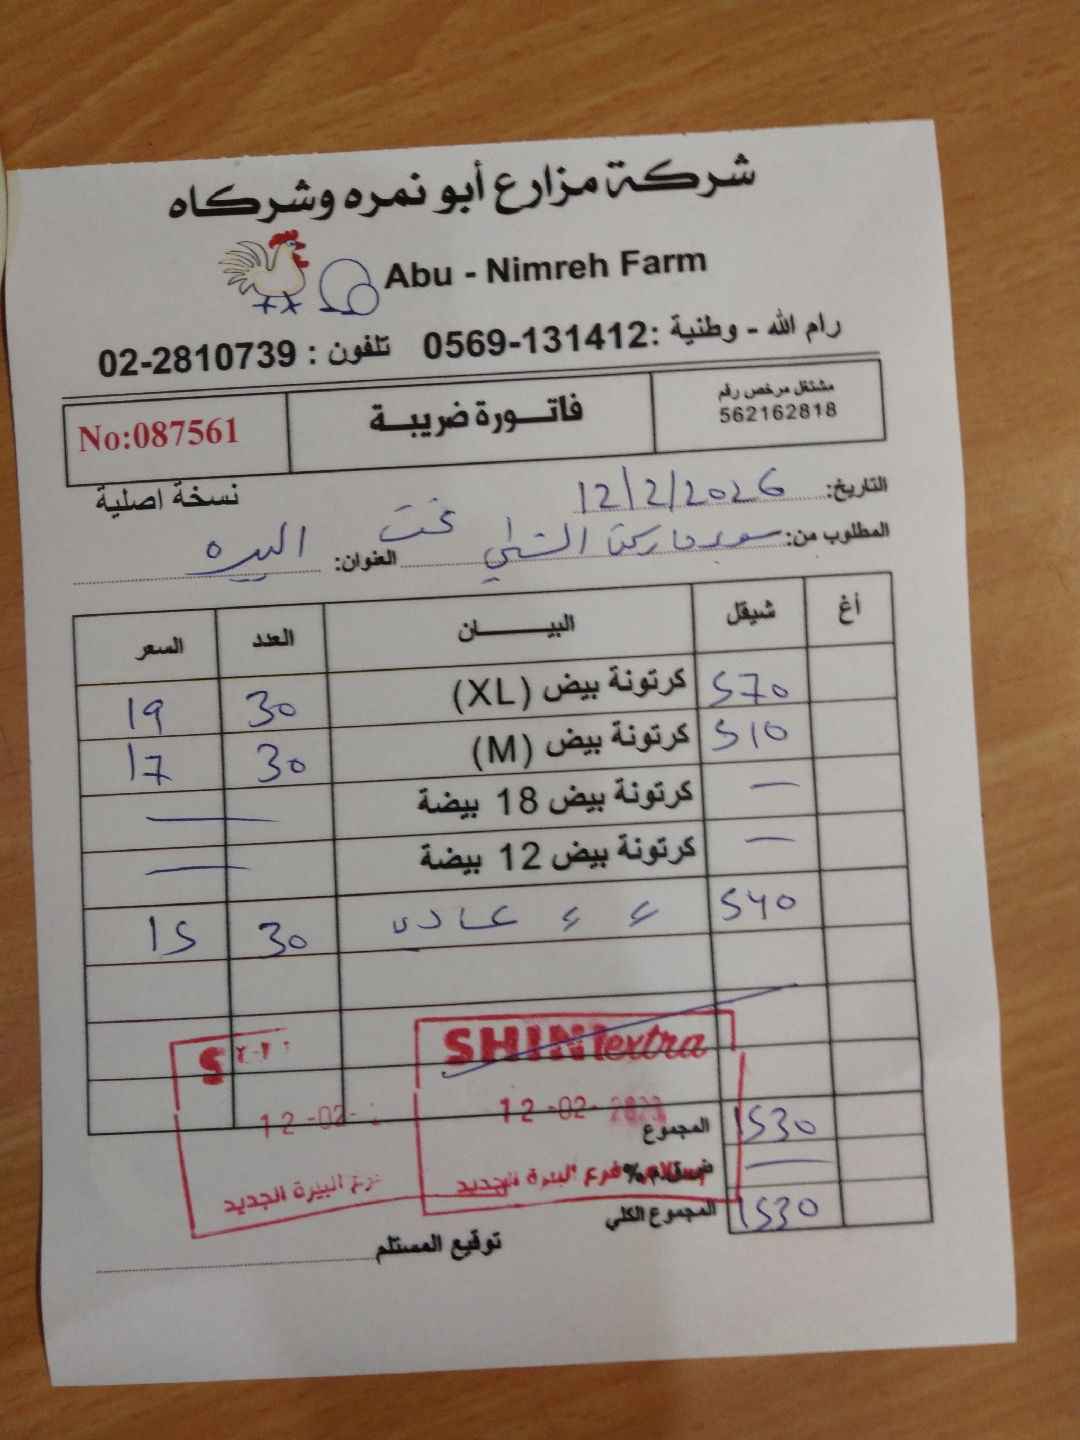 شركة مزارع أبو نمره وشركاه
Abu - Nimreh Farm
رام الله - وطنية : 0569-131412 تلفون : 02-2810739
مشتغل مرخص رقم
562162818
فاتـورة ضريبة
No:087561
نسخة اصلية
التاريخ: 12/2/2026
المطلوب من: سوبر ماركت الشني
العنوان: البيره
أغ شيقل البيـــان العدد السعر
570 كرتونة بيض (XL) 30 19
510 كرتونة بيض (M) 30 17
— كرتونة بيض 18 بيضة —
— كرتونة بيض 12 بيضة —
عادي 30 15
SHINI extra
12-02-
فرع البيرة الجديد
S
12-02-
فرع البيرة الجديد
المجموع 1530
% —
المجموع الكلي 1530
توقيع المستلم